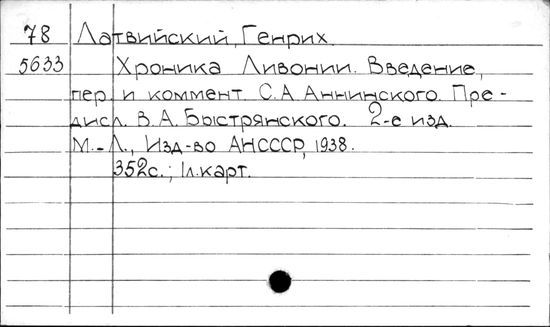 78 Латвийский, Генрих.
5633 Хроника Ливонии. Введение,
пер. и коммент. С.А. Аннинского. Пре-
дисл. В.А. Быстрянского. 2-е изд.
М.-Л., Изд-во АНСССР, 1938.
352с.; 1л.карт.